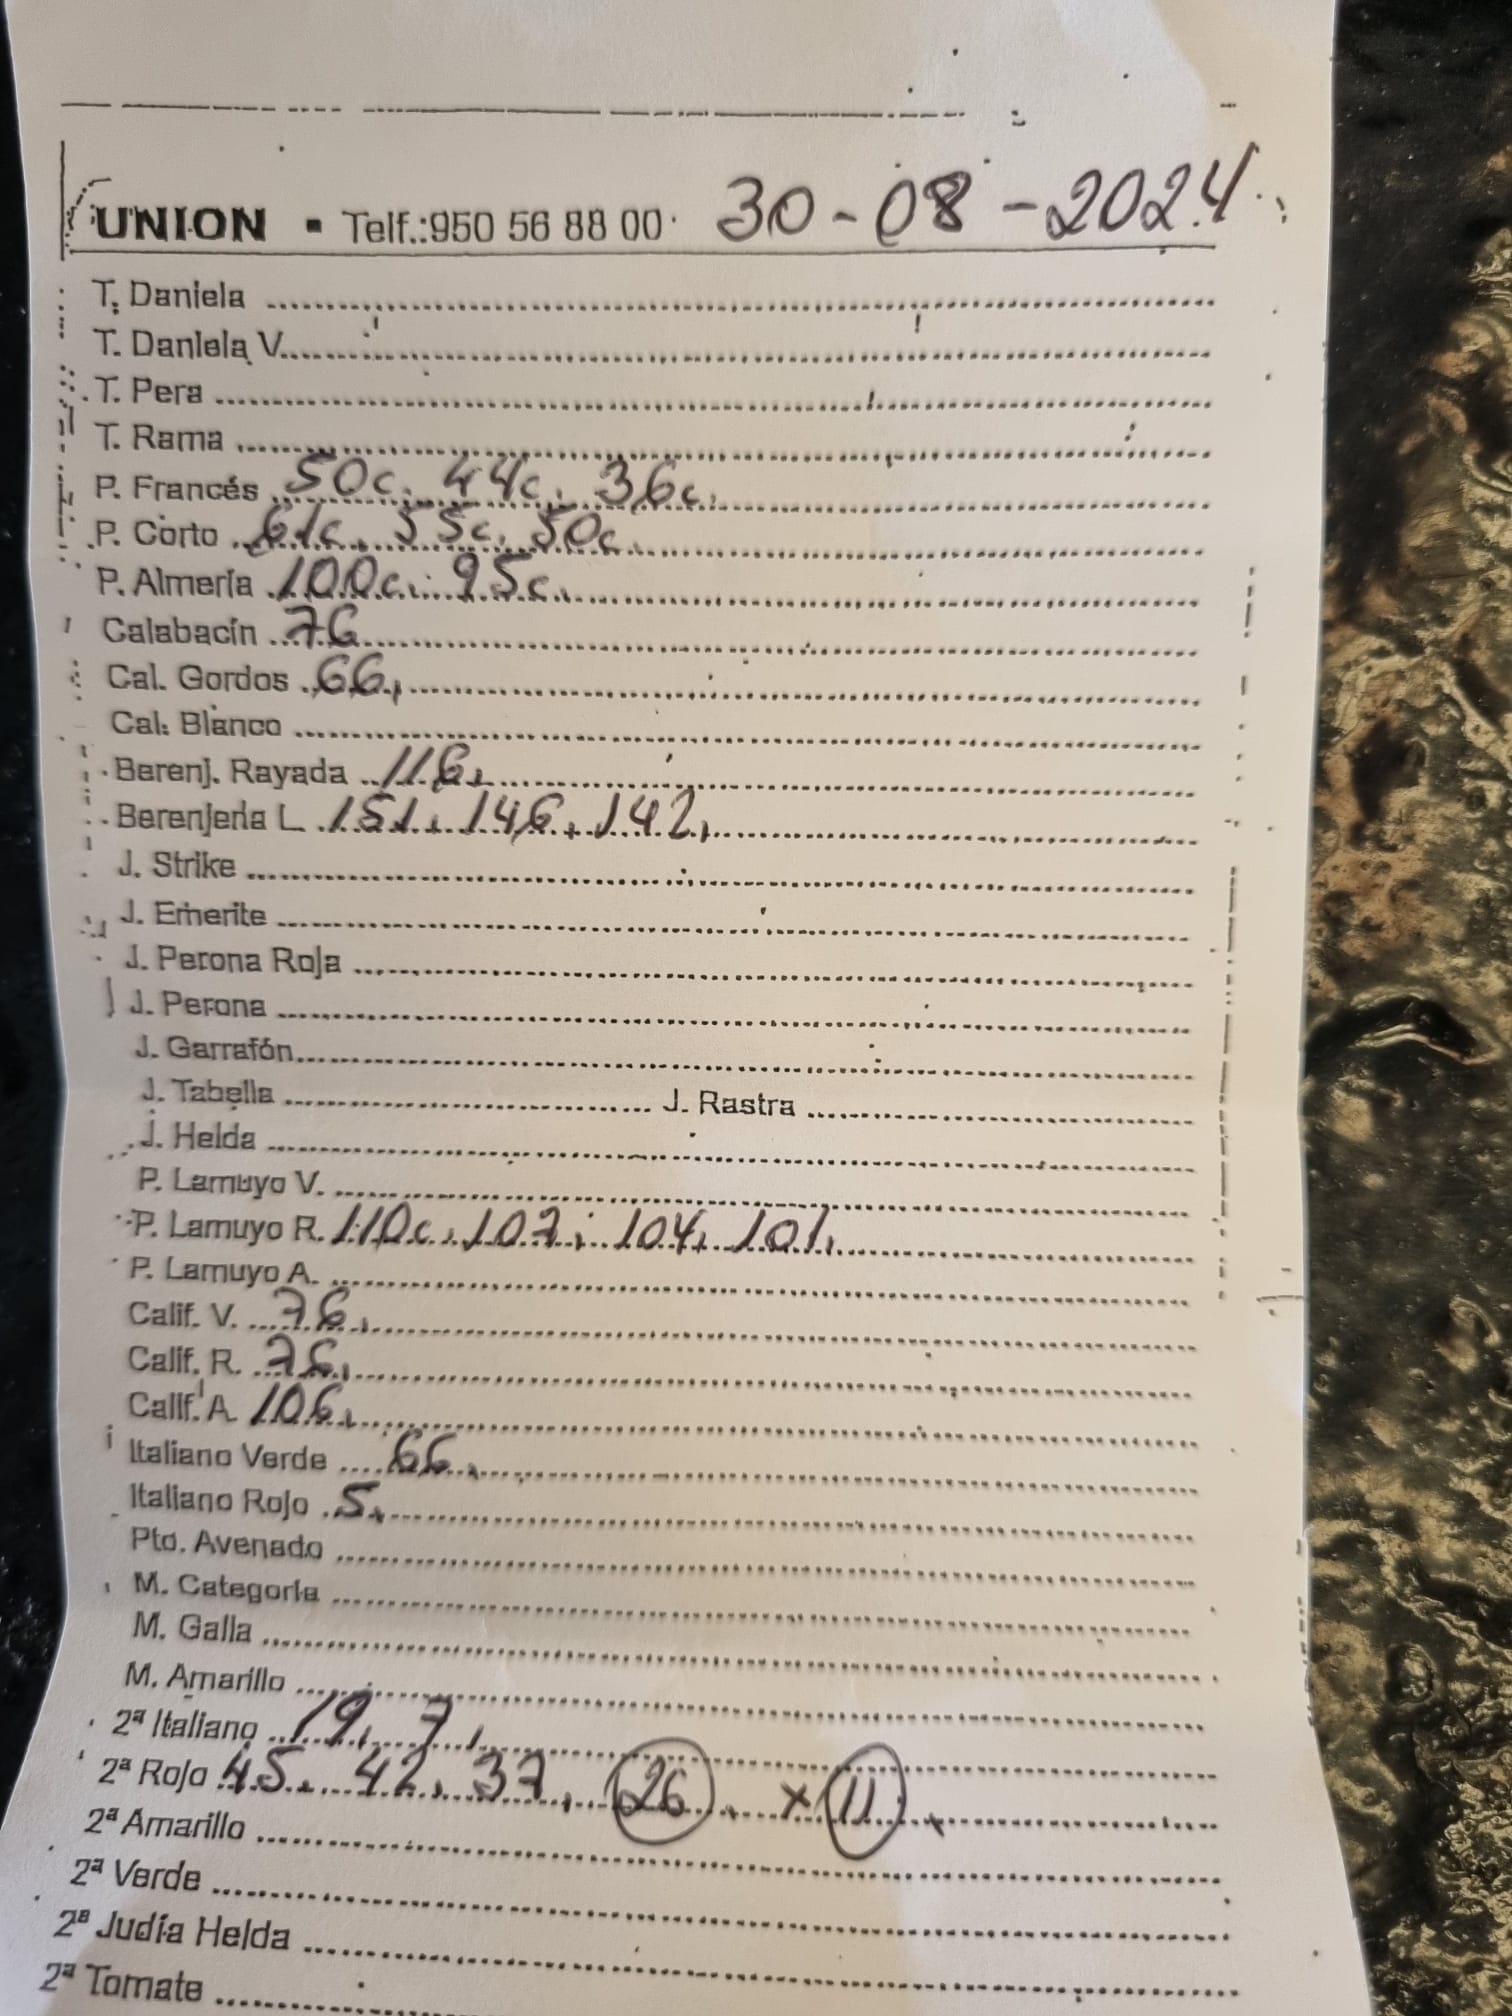 UNION ▪ Telf.:950 56 88 00 30-08-2024
T. Daniela
T. Daniela V.
T. Pera
T. Rama
P. Francés 50c. 44c. 36c.
P. Corto 61c. 55c. 50c
P. Almería 100c. 95c.
Calabacín 76
Cal. Gordos 66,
Cal. Blanco
Berenj. Rayada 116,
Berenjena L. 151, 146, 142,
J. Strike
J. Emerite
J. Perona Roja
J. Perona
J. Garrafón
J. Tabella J. Rastra
J. Helda
P. Lamuyo V.
P. Lamuyo R. 110c, 107, 104, 101,
P. Lamuyo A.
Calif. V. 76,
Calif. R. 76,
Calif. A. 106,
Italiano Verde 66,
Italiano Rojo 5,
Pto. Avenado
M. Categoría
M. Galla
M. Amarillo
2ª Italiano 19, 7,
2ª Rojo 45, 42, 37, 26, x 11,
2ª Amarillo
2ª Verde
2ª Judía Helda
2ª Tomate